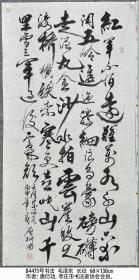 紅軍不怕遠征難萬水千山只等
闲五岭逶迤腾细浪乌蒙磅礴
走泥丸金沙水拍雲崖暖大
渡橋横铁索寒更喜岷山千
里雪三军过后尽开颜
B4475号 书法 毛泽东 长征 68×138cm
作者: 唐衍功, 枣庄市书法家协会会员。